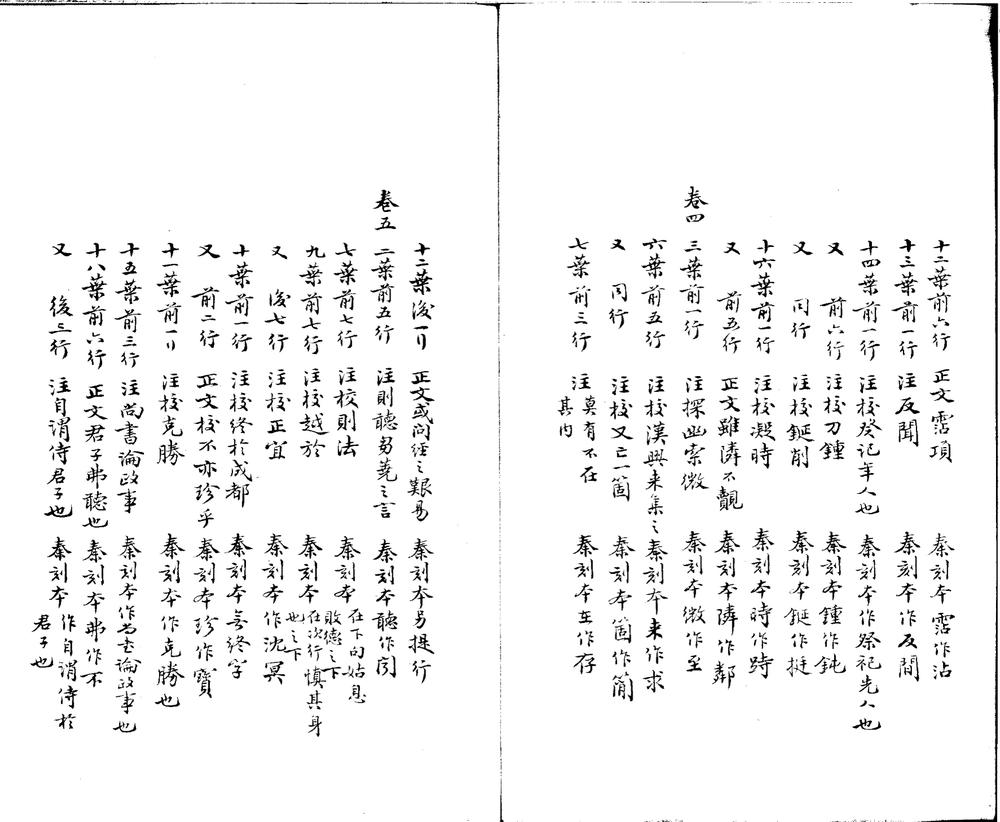 十二葉前六行 正文霑項 秦刻本霑作沾
十三葉前一行 注反聞 秦刻本作反間
十四葉前一行 注校癸祀年人也 秦刻本作祭祀先人也
又 前六行 注校刀鍾 秦刻本鍾作鈍
又 同行 注校鋋削 秦刻本鋋作挺
十六葉前一行 注校凝時 秦刻本時作跱
又 前五行 正文雖隣不覿 秦刻本隣作鄰
卷四 三葉前一行 注探幽索微 秦刻本微作至
六葉前五行 注校漢興来集之 秦刻本来作求
又 同行 注校又亡一箇 秦刻本箇作簡
七葉前三行 注莫有不在其内 秦刻本在作存
十二葉後一行 正文或問經之艱易 秦刻本另提行
卷五 二葉前五行 注則聽芻蕘之言 秦刻本聽作詢
七葉前七行 注校則法 秦刻本在下句姑息敗德之下
九葉前七行 注校越於 秦刻本在次行慎其身也之下
又 後七行 注校正宜 秦刻本作沈冥
十葉前一行 注校終於成都 秦刻本無終字
又 前二行 正文校不亦珍乎 秦刻本珍作寶
十一葉前一行 注校克勝 秦刻本作克勝也
十五葉前三行 注尚書論政事 秦刻本作尚書論政事也
十八葉前六行 正文君子弗聽也 秦刻本弗作不
又 後三行 注自謂侍君子也 秦刻本作自謂侍於君子也